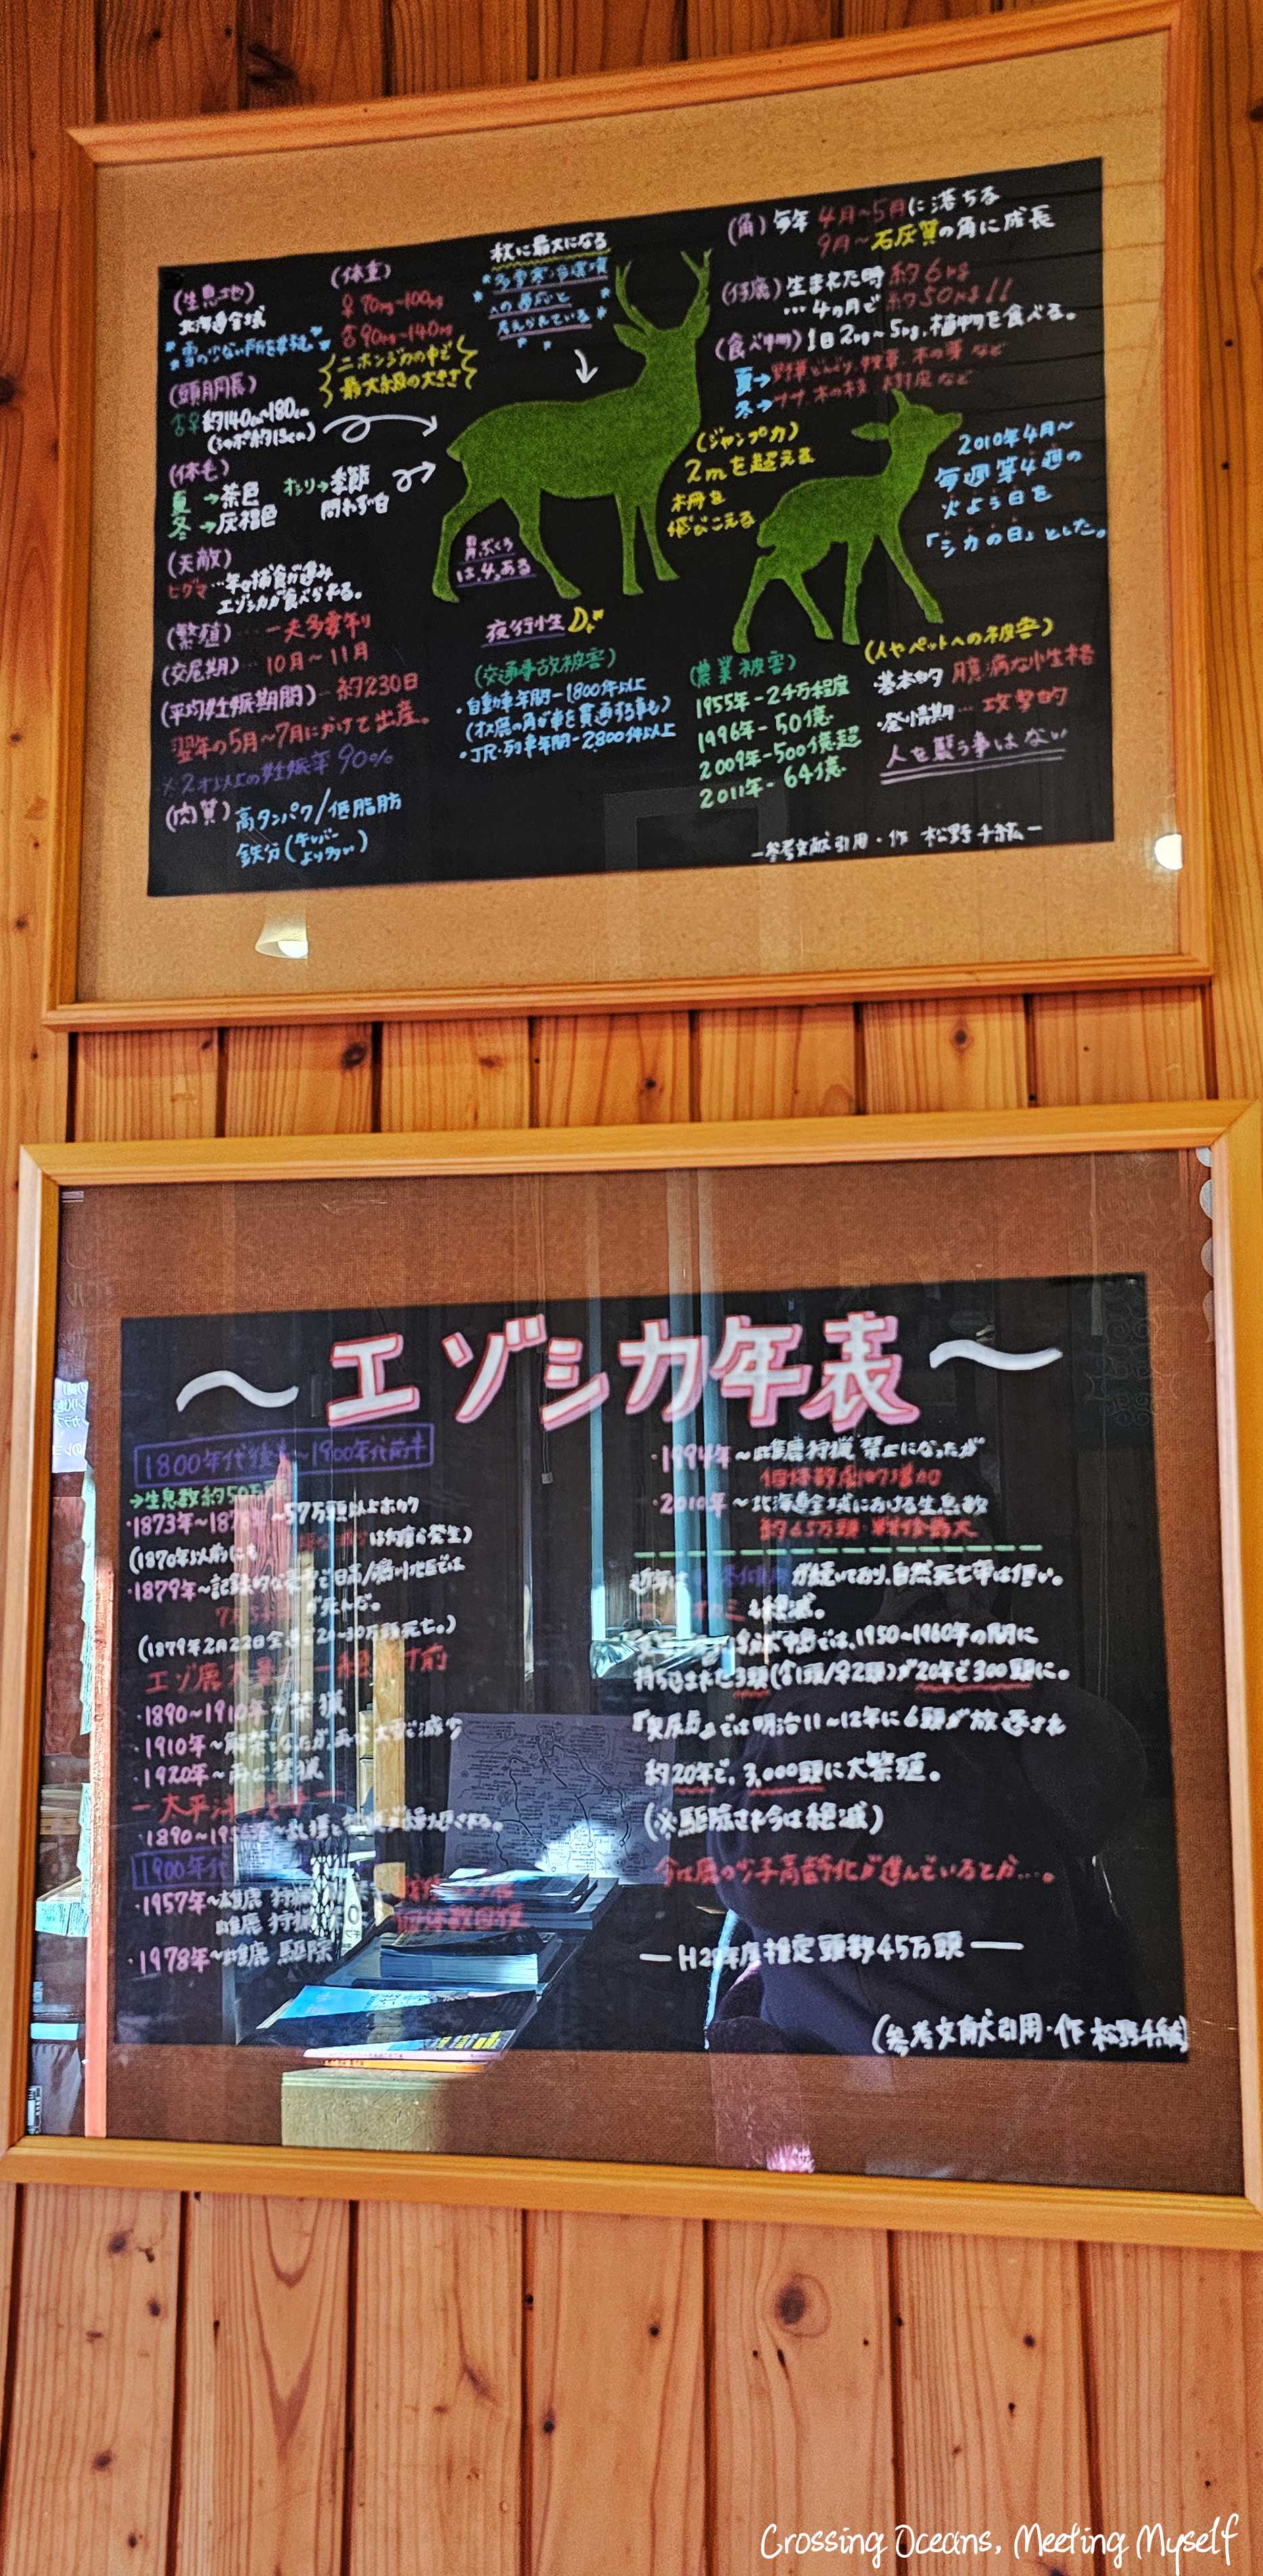 (生息地)
北海道全域
(頭胴長)
♂♀約140cm~180cm
(しっぽ約13cm)
(体毛)
夏→茶色
冬→灰褐色
オシリ→季節
問わず白
(天敵)
ヒグマ…年々捕食が進み
エゾシカが食べられる。
(繁殖)…一夫多妻制
(交尾期)…10月~11月
(平均妊娠期間)…約230日
翌年の5月~7月にかけて出産。
※2才以上の妊娠率90%
(肉質)高タンパク/低脂肪
鉄分(牛レバーより多い)
(体重)
♀70kg~100kg
♂90kg~140kg
ニホンジカの中で
最大級の大きさ
秋に最大になる
への適応と
考えられている
胃ぶくろ
は4つある
夜行性
(交通事故被害)
・自動車年間-1800件以上
(オス鹿の角が車を貫通する事も)
・JR・列車年間-2800件以上
(角)毎年4月~5月に落ちる
9月~石灰質の角に成長
(仔鹿)生まれた時約6kg
…4ヵ月で約50kg!!
(食べ物)1日2kg~5kg、植物を食べる。
夏→野草、どんぐり、牧草、木の芽など
冬→ササ、木の枝、樹皮など
(ジャンプ力)
2mを超える
柵を
飛びこえる
2010年4月~
毎週第4週の
火よう日を
「シカの日」とした。
(農業被害)
1955年-2千万程度
1996年-50億
2009年-500億超
2011年-64億
(人やペットへの被害)
基本的 臆病な性格
・発情期…攻撃的
人を襲う事はない
-参考文献引用・作 松野千紘-
~エゾシカ年表~
1800年代後半~1900年代前半
→生息数約50万
・1873年~
57万頭以上ホカク
(1870年以前にも
は何度か発生)
・1879年~記録的な豪雪で日高/鵡川地区では
が死んだ。
(1879年2月22日
エゾ鹿
・1890~1910年~禁猟
・1910年~解禁となったが再び大雪で減少
・1920年~再び禁猟
・1890~
1900年代
・1957年~雄鹿 狩猟
雌鹿 狩猟
・1978年~雌鹿 駆除
・1994年~雌鹿狩猟禁止になったが
個体数劇的増加
・2010年~北海道全域における生息数
約65万頭
が続いており、自然死亡率は低い。
も絶滅。
中島では、1950~1960年の間に
持ち込まれた3頭(♂1頭/♀2頭)が20年で300頭に。
では明治11~12年に6頭が放逐され
約20年で、3,000頭に大繁殖。
(※駆除され今は絶滅)
今は鹿の少子高齢化が進んでいるとか…。
-H29年度推定頭数45万頭-
(参考文献引用・作 松野千紘)
Crossing Oceans, Meeting Myself